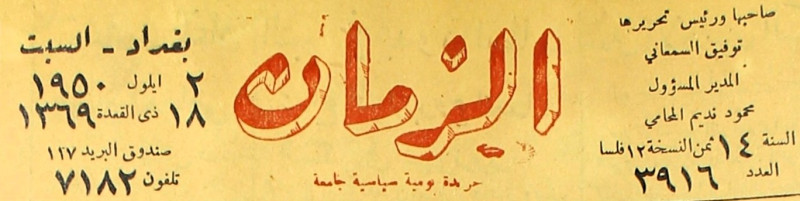 صاحبها ورئيس تحريرها
توفيق السمعاني
المدير المسؤول
محمود نديم المحامي
السنة ١٤ ثمن النسخة ١٢ فلسا
العدد ٣٩١٦
الزمان
جريدة يومية سياسية جامعة
بغداد - السبت
٢ ايلول ١٩٥٠
١٨ ذى القعدة ١٣٦٩
صندوق البريد ١٢٧
تلفون ٧١٨٢